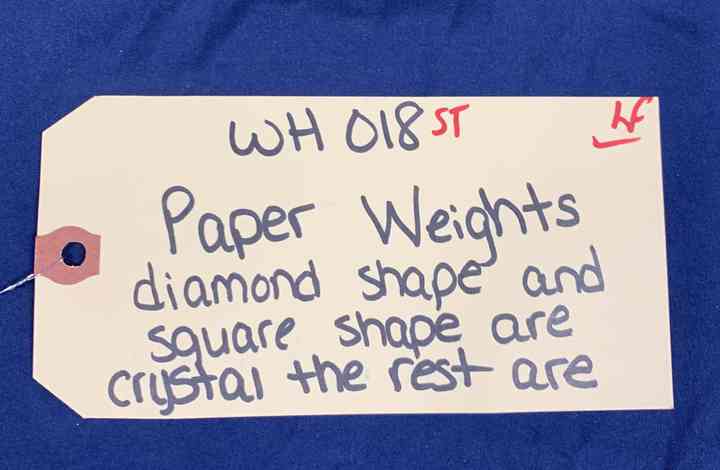 WH 018 ST LF
Paper Weights
diamond shape and
square shape are
crystal the rest are